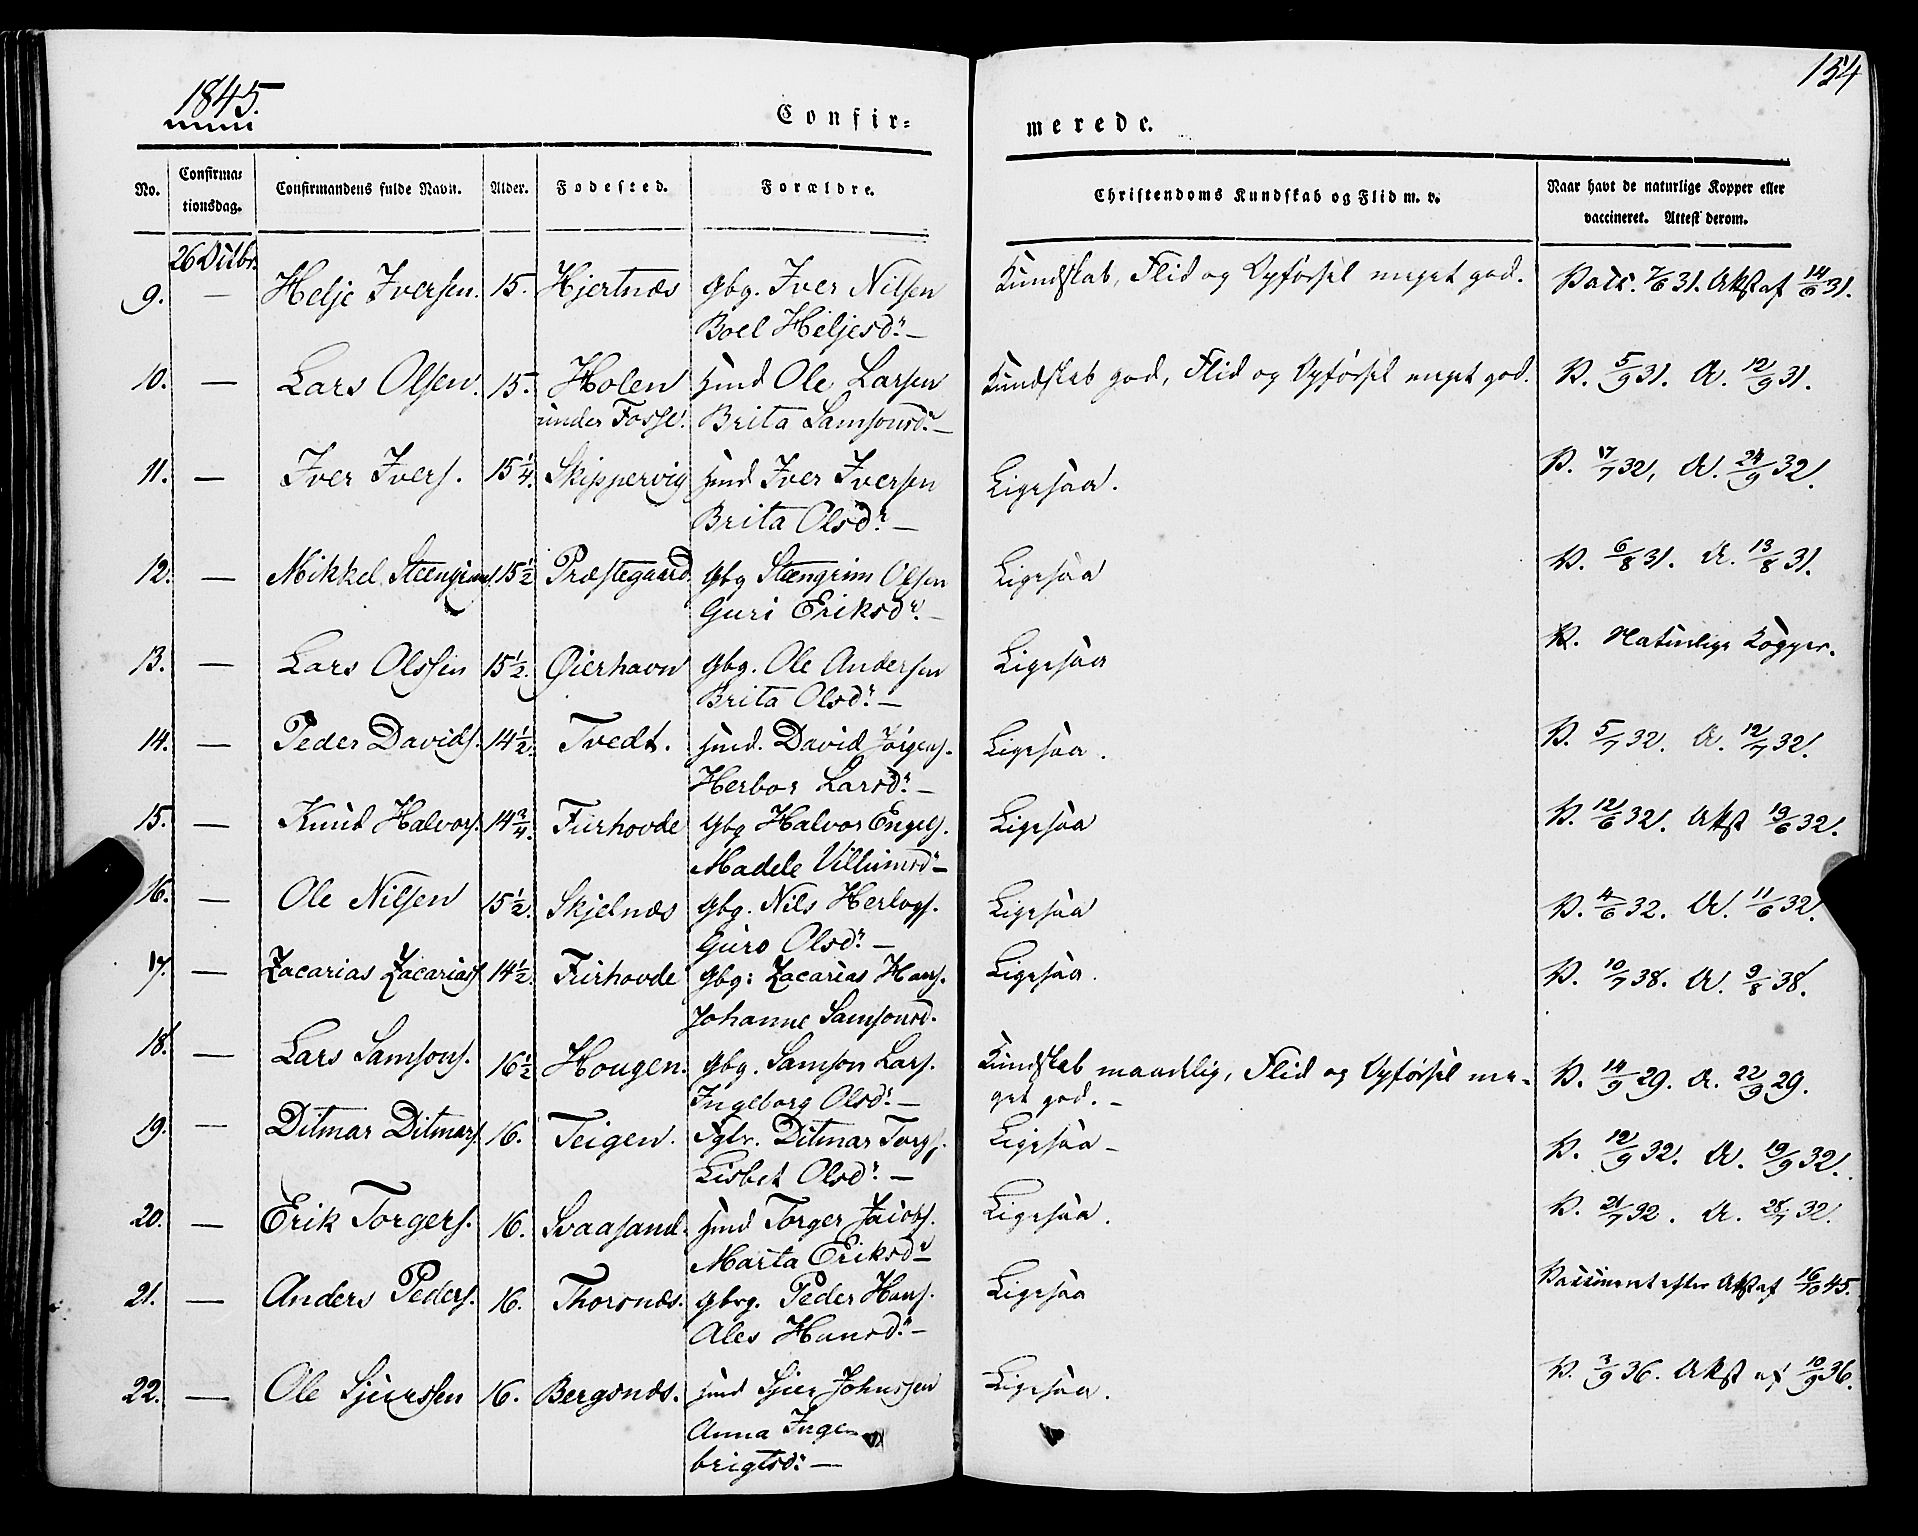 1845.
154
Confir=
merede.
No.
Confirma=
tionsdag.
Confirmandens fulde Navn.
Alder.
Fødested.
Forældre.
Christendoms Kundskab og Flid m. v.
Naar havt de naturlige Kopper eller
vaccineret. Attest derom.
26 Octbr.
9. — Helje Iversen. 15. Hjertnæs Gbg. Iver Nilsen Kundskab, Flid og Opførsel meget god. Vacc. 7/6 31. Attst af 14/6 31.
Boel Heljesd. —
10. — Lars Olsen. 15. Holen Hmd Ole Larsen Kundskab god, Flid og Opførsel meget god. V. 5/9 31. A. 12/9 31.
under Fosse. Brita Samsonsd. —
11. — Iver Ivers. 15 1/4. Skippervig Hmd Iver Iversen Ligesaa. V. 17/7 32, A. 24/9 32.
Brita Olsd. —
12. — Mikkel Steengrims. 15 1/2 Præstegaard. Gbg Steengrim Olsen Ligesaa V. 6/8 31. A. 13/8 31.
Guri Eriksd. —
13. — Lars Olssen 15 1/2. Øierhavn Gbg. Ole Andersen Ligesaa Naturlige Kopper.
Brita Olsd. —
14. — Peder Davids. 14 1/2. Tvedt. Hmd. David Jørgens. Ligesaa. V. 5/7 32. A. 12/7 32.
Herbor Larsd. —
15. — Knud Halvors. 14 3/4. Fiirhovde Gbg Halvor Engels. Ligesaa V. 12/6 32. Attst 19/6 32.
Madele Villumsd —
16. — Ole Nilsen 15 1/2. Skjelnæs Gbg. Nils Herlogs. Ligesaa V. 4/6 32. A. 11/6 32.
Guro Olsd. —
17. — Zacarias Zacarias. 14 1/2. Fiirhovde Gbg: Zacarias Hans. Ligesaa. V. 10/7 38. A. 9/8 38.
Johanne Samsonsd.
18. — Lars Samsons. 16 1/2 Hougen. Gbg. Samson Lars. Kundskab maadelig, Flid og Opførsel me- V. 14/9 29. A. 22/9 29.
Ingeborg Olsd. — get god. —
19. — Ditmar Ditmars. 16. Teigen. Ditmar Torgs. Ligesaa — V. 12/9 32. A. 19/9 32.
Lisbet Olsd. —
20. — Erik Torgers. 16. Svaasand. Hmd Torger Jacobs. Ligesaa. V. 21/7 32. A. 28/7 32.
Marta Eriksd —
21. — Anders Peders. 16. Thorsnæs. Gbrg. Peder Hans. Ligesaa Vaccineret efter Attst af 16/10 45.
Ales Hansd. —
22. — Ole Sjurssen 16. Bergsnæs. Hmd Sjur Johnssen Ligesaa. V. 3/9 36. Attst af 10/9 36.
Anna Inge-
brigtsd. —